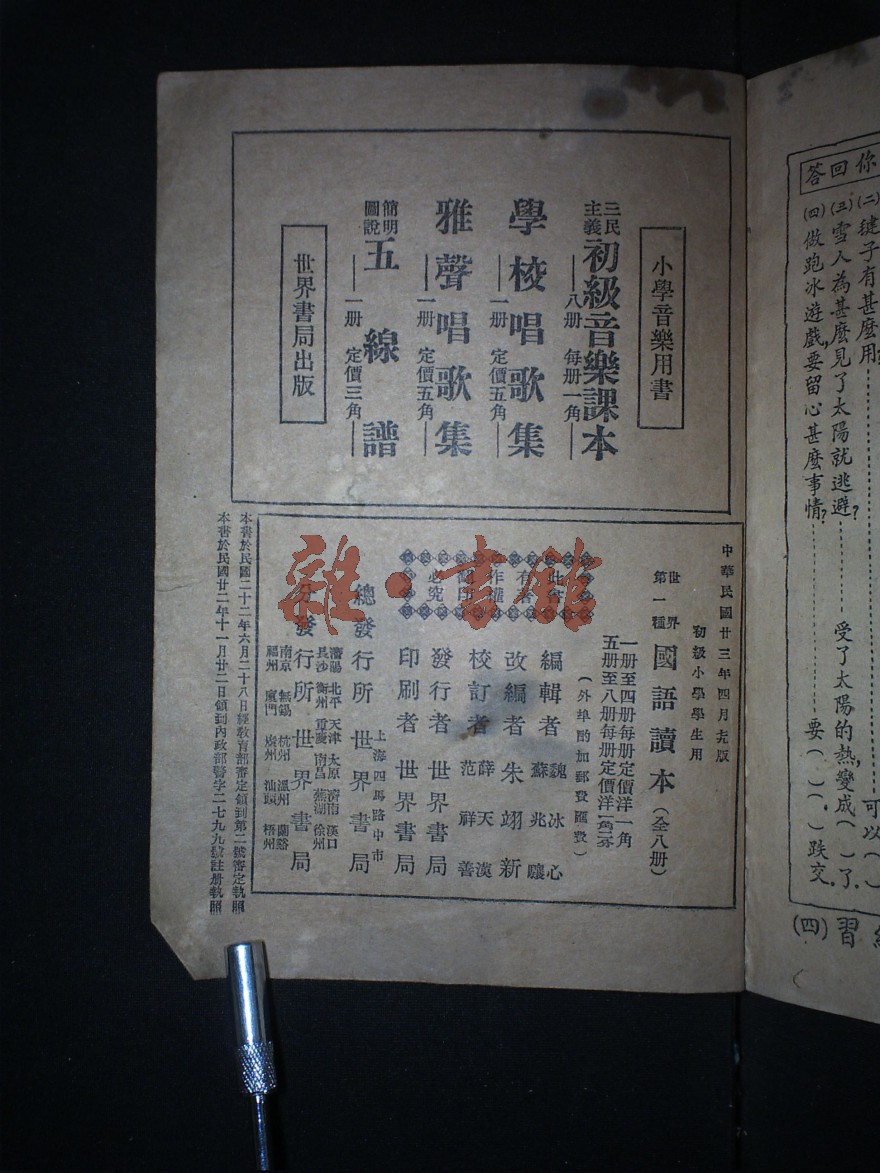 你回答
(二)毽子有甚麼用
可以( )
(三)雪人為甚麼見了太陽就逃避?
受了太陽的熱,變成( )了.
(四)做跑冰遊戲,要留心甚麼事情?
要( ),( )跌交.
習(四)
小學音樂用書
三民主義初級音樂課本
八册 每册一角
學校唱歌集
一册 定價五角
雅聲唱歌集
一册 定價五角
簡明圖說五線譜
一册 定價三角
世界書局出版
中華民國廿三年四月 版
初級小學學生用
世界第一種國語讀本(全八册)
一册至四册每册定價洋一角
五册至八册每册定價洋
(外埠酌加郵費匯費)
此書
有著
作權
翻印
必究
編輯者 魏冰心 蘇兆驤
改編者 朱翊新
校訂者 薛天漢 范祥善
發行者 世界書局
印刷者 世界書局
上海四馬路中市
總發行所 世界書局
瀋陽 北平 天津 太原 濟南 漢口
長沙 衡州 重慶 南昌 蕪湖 徐州
分發行所 世界書局
南京 無錫 杭州 溫州 蘭谿
福州 廈門 廣州 汕頭 梧州
本書於民國二十二年六月二十八日經教育部審定領到第二號審定執照
本書於民國廿二年十一月廿二日領到內政部警字二七九九號註册執照
雜·書館